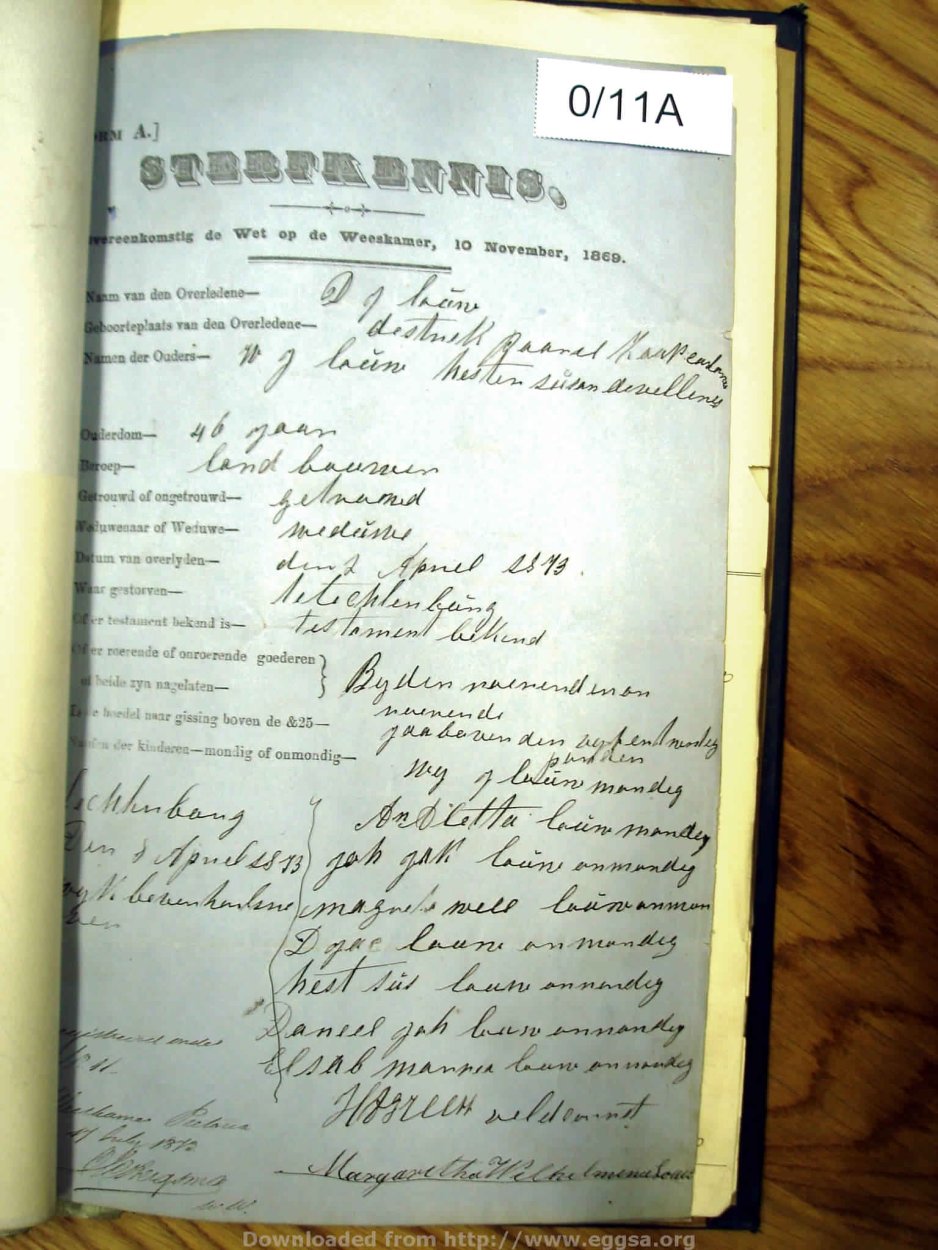 0/11A
ORM A.]
STERFKENNIS.
vereenkomstig de Wet op de Weeskamer, 10 November, 1869.
Naam van den Overledene— D J louw
Geboorteplaats van den Overledene— destriek paarel
Namen der Ouders— W J louw hester susan devellers
Ouderdom— 46 jaar
Beroep— land bouwer
Getrouwd of ongetrouwd— getrouwd
Weduwenaar of Weduwe— weduwe
Datum van overlyden— den 2 Apriel 1873.
Waar gestorven— te lechtenburg
Of er testament bekend is— testament bekend
Of er roerende of onroerende goederen
of beide zyn nagelaten— Byden roerend en on
roerende
boedel naar gissing boven de &25— jaa boven den vyf en twintig
ponden
der kinderen—mondig of onmondig— louw mondig
lechtenburg
Alletta louw mondig
Den 8 Apriel 1873 joh jak louw onmondig
louw onmon
D jac louw onmondig
hest sus louw onmondig
Daneel joh louw onmondig
Elsab marrea louw onmondig
veldcornet
Pretoria
July 1873
Margaretha Wilhelmena Louw
Downloaded from http://www.eggsa.org